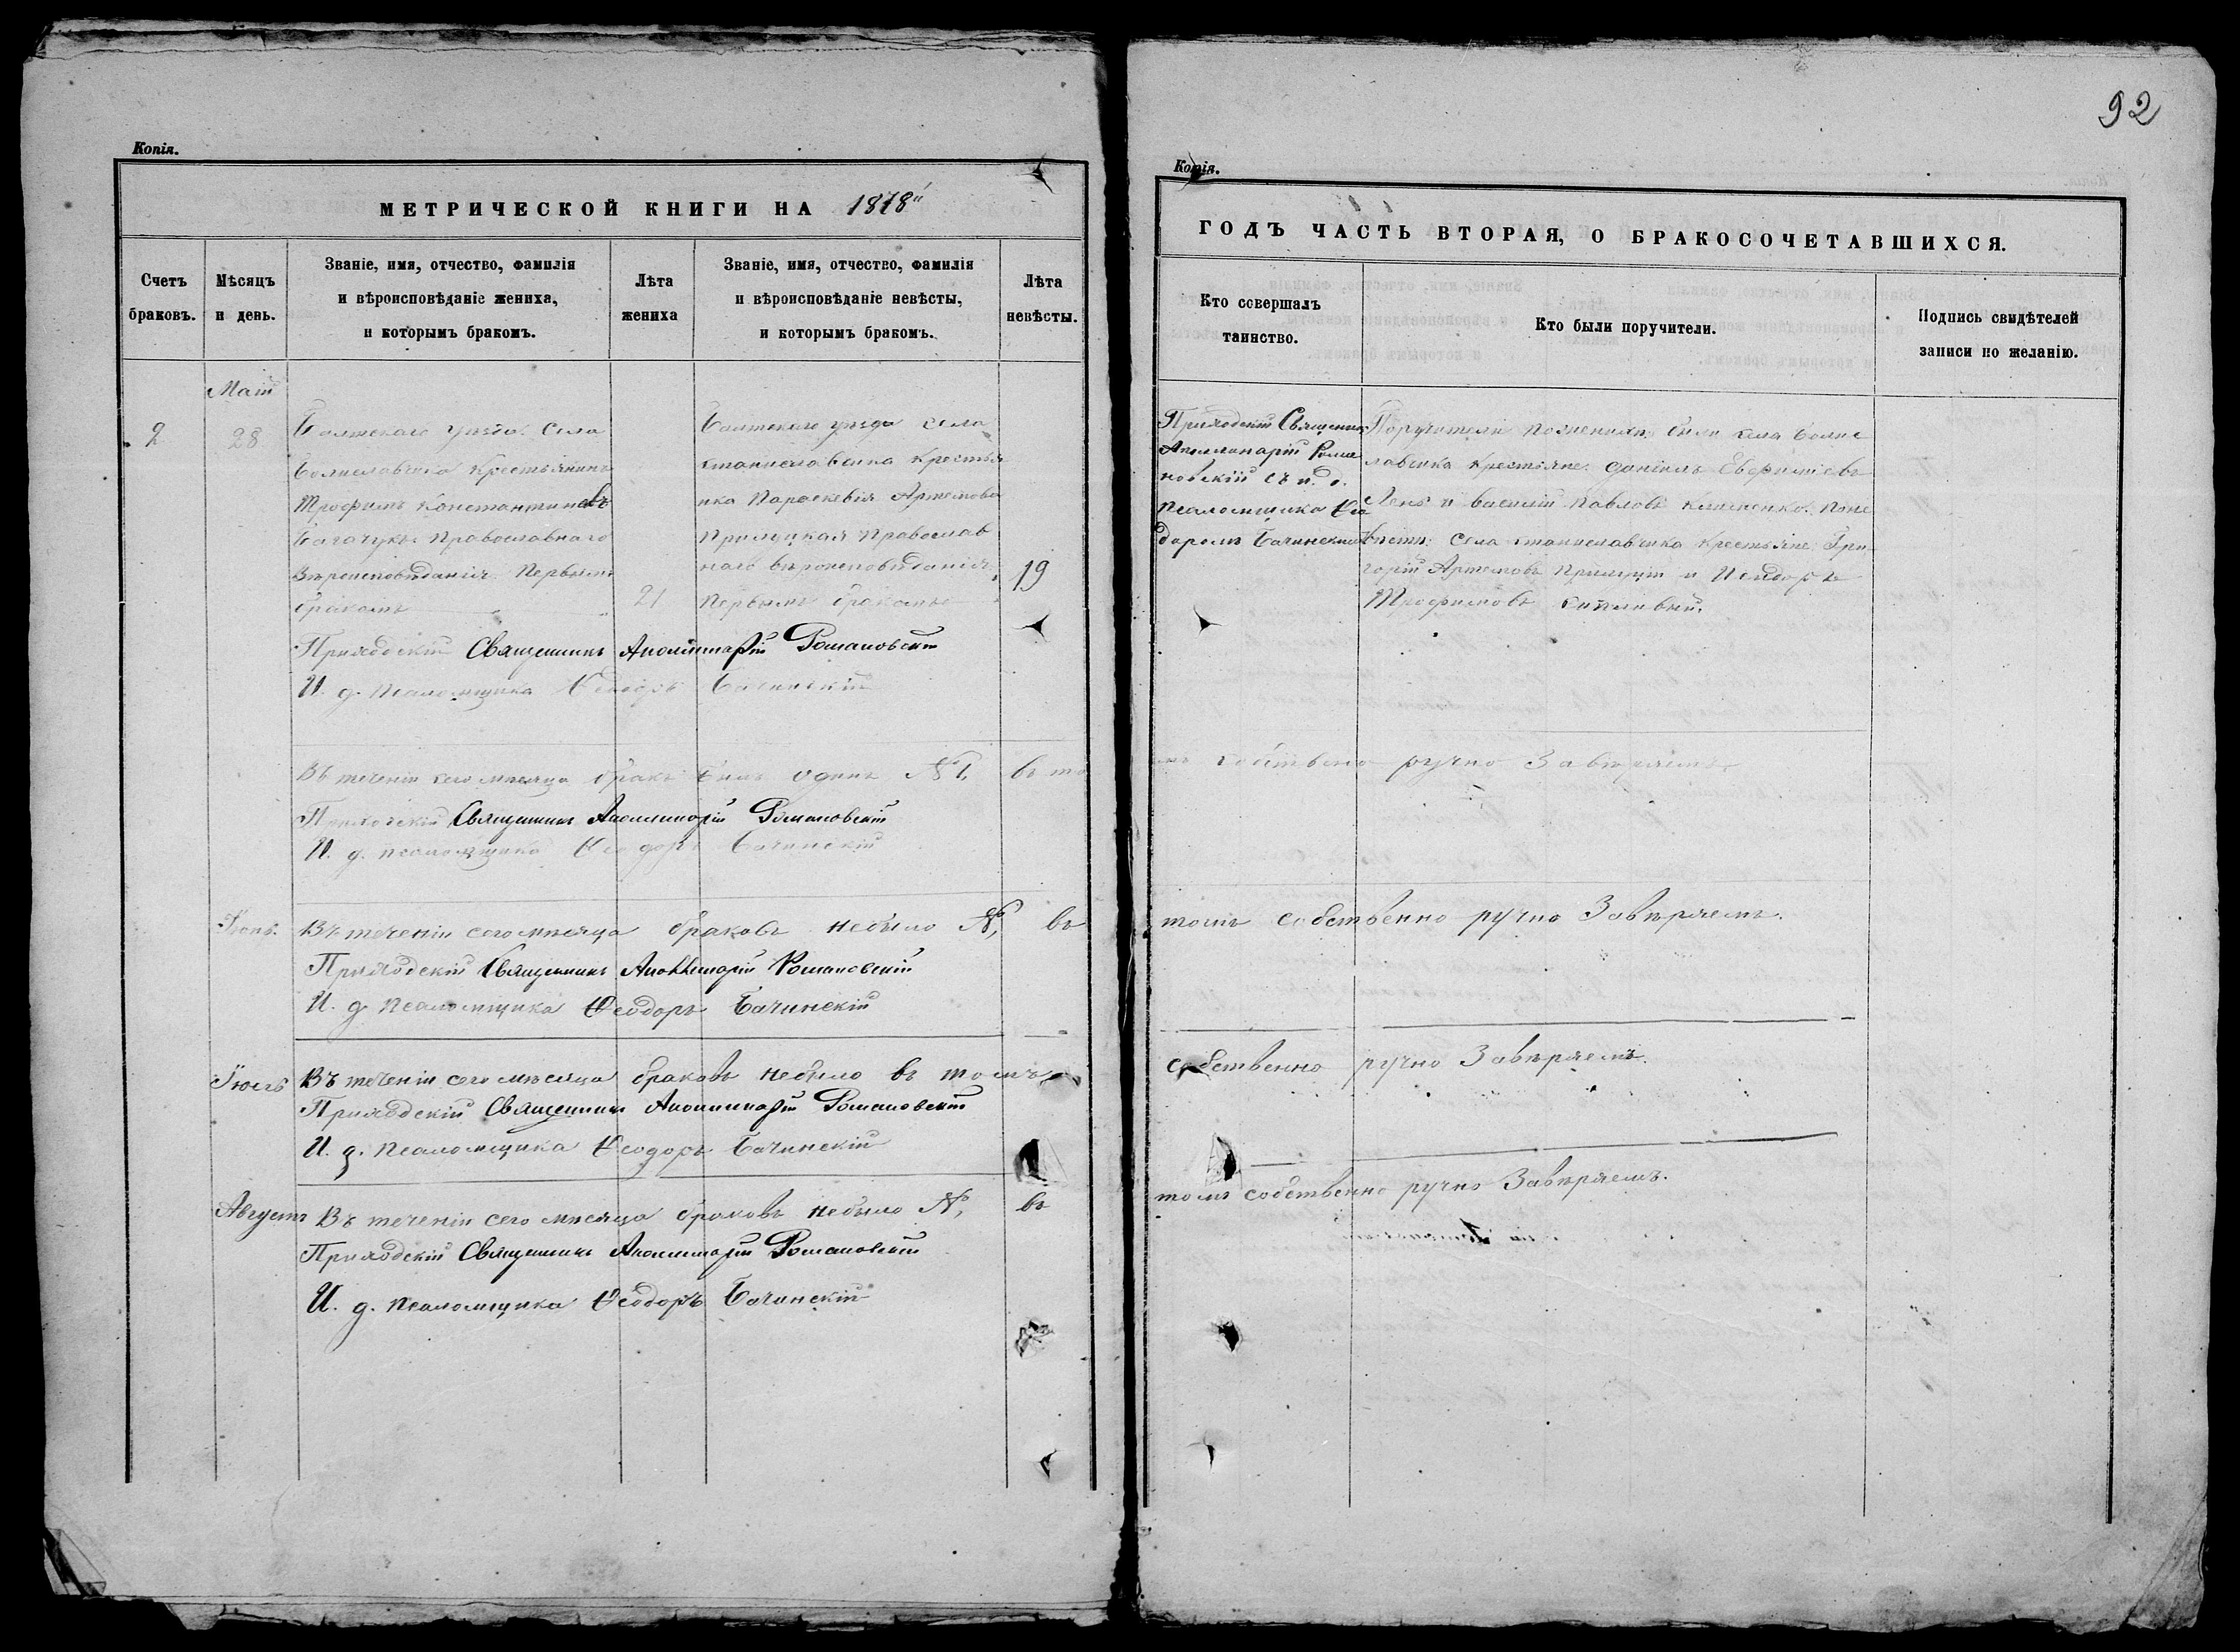 92
Копія.
МЕТРИЧЕСКОЙ КНИГИ НА 1878
Счетъ браковъ.
Мѣсяцъ и день.
Званіе, имя, отчество, фамилія и вѣроисповѣданіе жениха, и которымъ бракомъ.
Лѣта жениха
Званіе, имя, отчество, фамилія и вѣроисповѣданіе невѣсты, и которымъ бракомъ.
Лѣта невѣсты.
Май
2
28
Балтскаго уѣзда села
Болиславчика крестьянинъ
Трофимъ Константиновъ
православнаго
вѣроисповѣданія первымъ
бракомъ
21
Балтскаго уѣзда села
Станиславчика крестья
нка Параскевія Артемова
православ
наго вѣроисповѣданія,
первымъ бракомъ
19
Приходскій Священникъ Аполлинарій Романовскій
И. д. псаломщика Ѳеодоръ Бачинскій
Въ теченіи сего мѣсяца бракъ былъ одинъ № 1, въ то
Приходскій Священникъ Аполлинарій Романовскій
И. д. псаломщика Ѳеодоръ Бачинскій
Іюнь.
Въ теченіи сего мѣсяца браковъ небыло №, въ
Приходскій Священникъ Аполлинарій Романовскій
И. д. псаломщика Ѳеодоръ Бачинскій
Іюль
Въ теченіи сего мѣсяца браковъ небыло въ томъ
Приходскій Священникъ Аполлинарій Романовскій
И. д. псаломщика Ѳеодоръ Бачинскій
Августъ
Въ теченіи сего мѣсяца браковъ небыло №, въ
Приходскій Священникъ Аполлинарій Романовскій
И. д. псаломщика Ѳеодоръ Бачинскій
Копія.
ГОДЪ ЧАСТЬ ВТОРАЯ, О БРАКОСОЧЕТАВШИХСЯ.
Кто совершалъ таинство.
Кто были поручители.
Подпись свидѣтелей записи по желанію.
Приходскій Священникъ
Аполлинарій Рома
новскій съ и. д.
псаломщика Ѳео
доромъ Бачинскимъ
Поручители по женихѣ были села Болис
лавчика крестьяне Даніилъ Евфиміевъ
и Василій Павловъ Клименко. По не
вѣстѣ села Станиславчика крестьяне Гри
горій Артемовъ и Исидоръ
Трофимовъ
мъ собственно ручно Завѣряемъ.
томъ собственно ручно Завѣряемъ.
собственно ручно Завѣряемъ.
томъ собственно ручно Завѣряемъ.